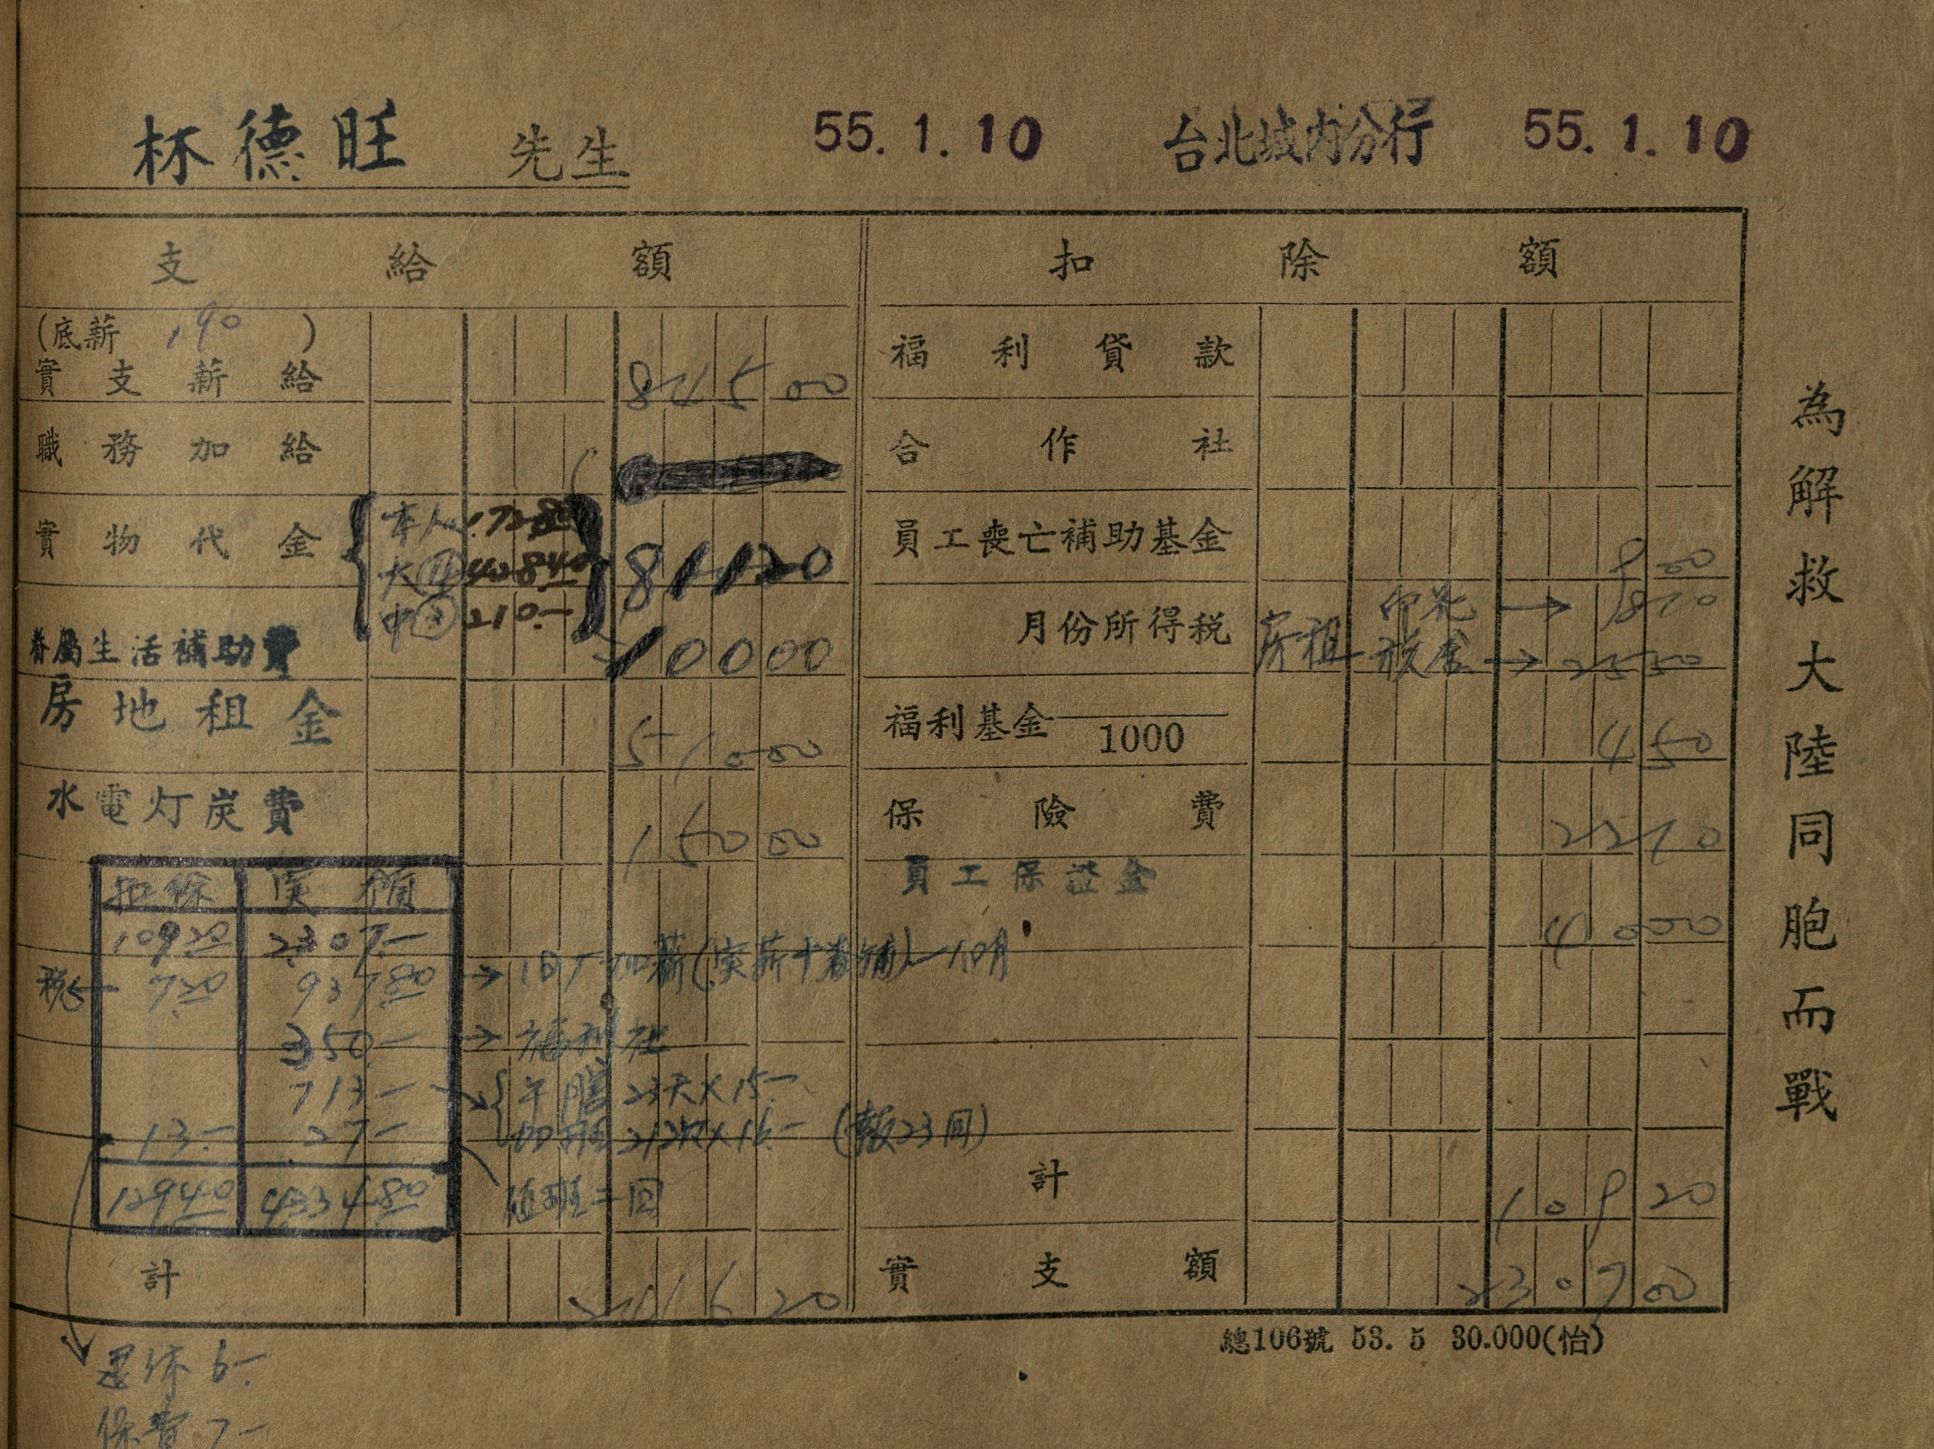 林德旺 先生 55.1.10 台北城内分行 55.1.10
支給額
扣除額
(底薪 190 )
實支薪給 845 00
職務加給
實物代金
本人 172.80
大 428 40
中 210.-
811 20
眷屬生活補助費 100 00
房地租金 510 00
水電灯炭費 150 00
扣除 実額
109 20 2307-
税 7.20 937.80 → 1月加薪(実薪+眷補)-10月
350.- → 福利社
713-
午膳 23天×15-
加班 21次×16- (報23回)
13- 27-
值班二回
129 40 4334 80
計 2416 20
福利貸款
合作社
員工喪亡補助基金 9 00
月份所得税 房租
印花 → 18 10
税房 →
福利基金 ——/1000 4 50
保險費 22 10
員工保證金 40 00
計 109 20
實支額 2307 00
為解救大陸同胞而戰
總106號 53. 5 30.000(怡)
退休 6-
保費 7-